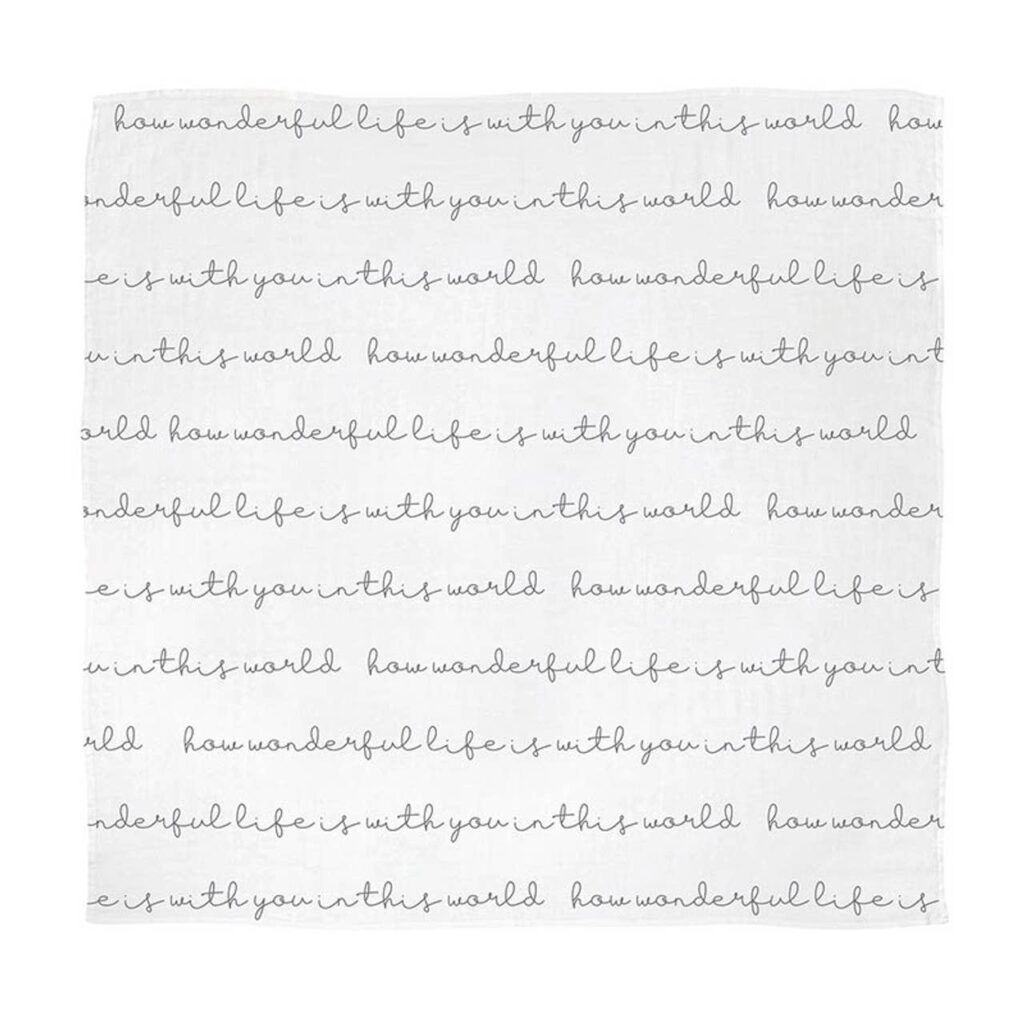 how wonderful life is with you in this world how
onderful life is with you in this world how wonder
e is with you in this world how wonderful life is
u in this world how wonderful life is with you in t
orld how wonderful life is with you in this world
onderful life is with you in this world how wonder
e is with you in this world how wonderful life is
u in this world how wonderful life is with you in t
rld how wonderful life is with you in this world
nderful life is with you in this world how wonder
e is with you in this world how wonderful life is